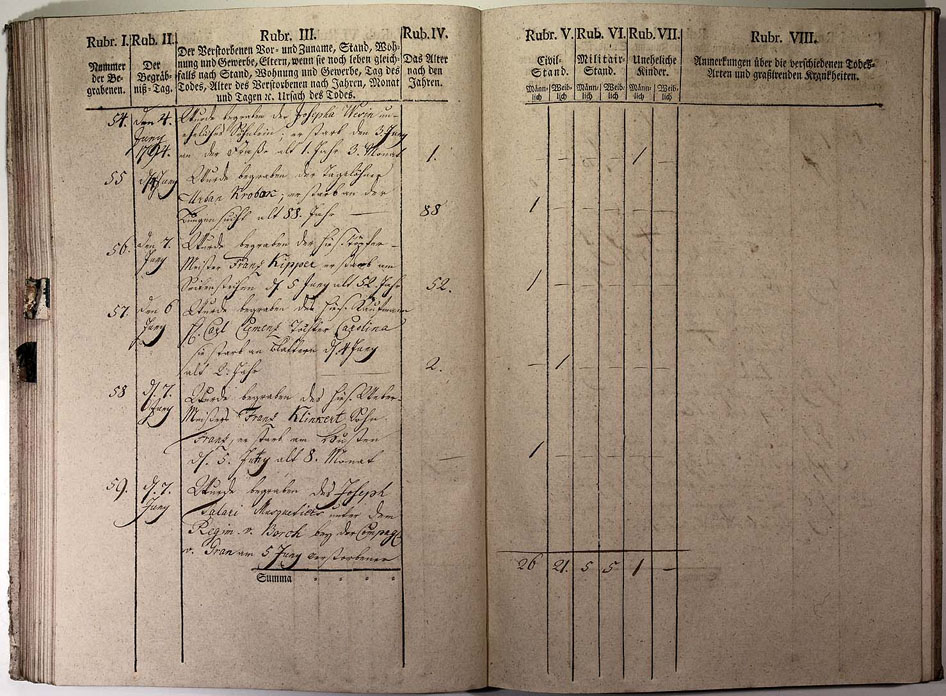 Rubr. I. Rub. II. Rubr. III. Rub. IV.
Nummer der Begrabenen.
Der Begräbniß-Tag.
Der Verstorbenen Vor- und Zuname, Stand, Wohnung
und Gewerbe, Eltern, wenn sie noch leben gleichfalls
nach Stand, Wohnung und Gewerbe, Tag des
Todes, Alter des Verstorbenen nach Jahren, Monat
und Tagen ꝛc. Ursach des Todes.
Das Alter nach den Jahren.
54. den 4. Juny 1794.
Wurde begraben der Josepha
er starb den 3 Juny
an der alt 1. Jahr 3. Monat 1.
55 Juny
Wurde begraben der Tagelöhner
Urban er starb an der
Lungensucht alt 88. Jahr 88
56. den 7. Juny
Wurde begraben der
Meister Franz er starb am
d. 5 Juny alt 52. Jahr 52.
57. den 6 Juny
Wurde begraben des
Carl Clement Tochter Carolina
sie starb an Blattern d. 4 Juny
alt 2. Jahr 2.
58 d. 7. Juny
Wurde begraben des
Meisters Franz Klinkert Sohn
Franz, er starb am Husten
d. 5. alt 8. Monat —
59. d. 7. Juny
Wurde begraben des Joseph
Musquetiers unter dem
Regim. v. Borch bey der Compag.
v. am 5 Juny verstorbener
Summa
Rubr. V. Rub. VI. Rub. VII. Rubr. VIII.
Civil-Stand.
Militair-Stand.
Uneheliche Kinder.
Anmerkungen über die verschiedenen Todes-
Arten und grassirenden Krankheiten.
Männlich Weiblich Männlich Weiblich Männlich Weiblich
– – – – 1 –
1 – – – – –
1 – – – – –
– 1 – – – –
1 – – – – –
26 21. 5 5 1 –